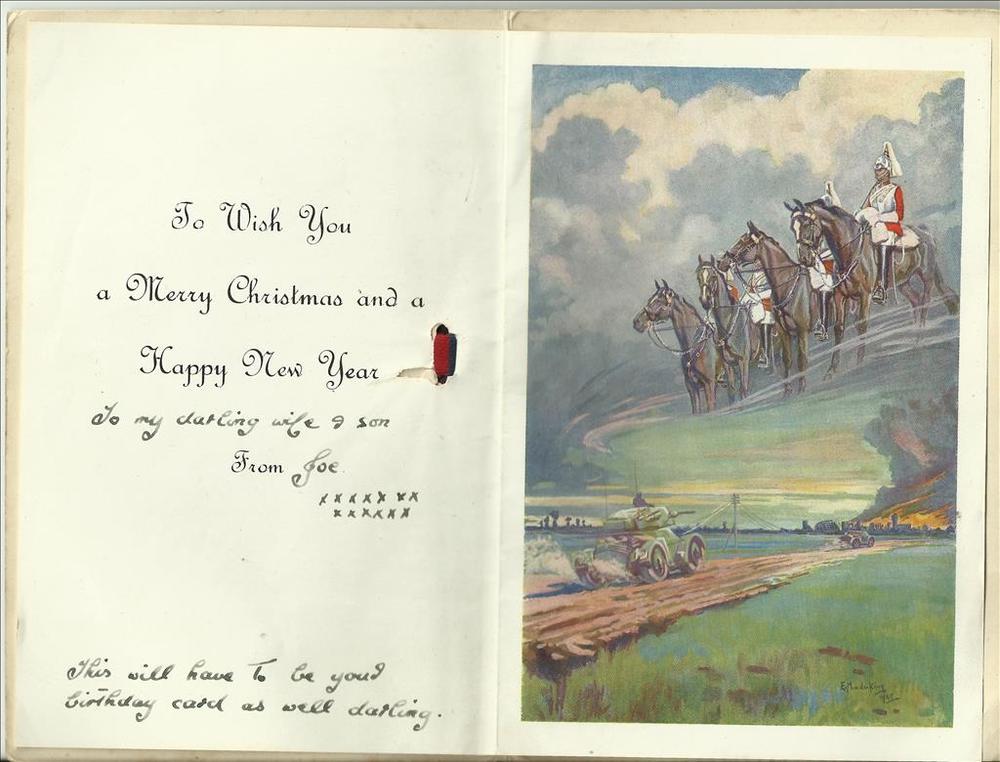 To Wish You
a Merry Christmas and a
Happy New Year
To my darling wife & son
From Joe.
x x x x x x x
x x x x x x
This will have to be your
birthday card as well darling.